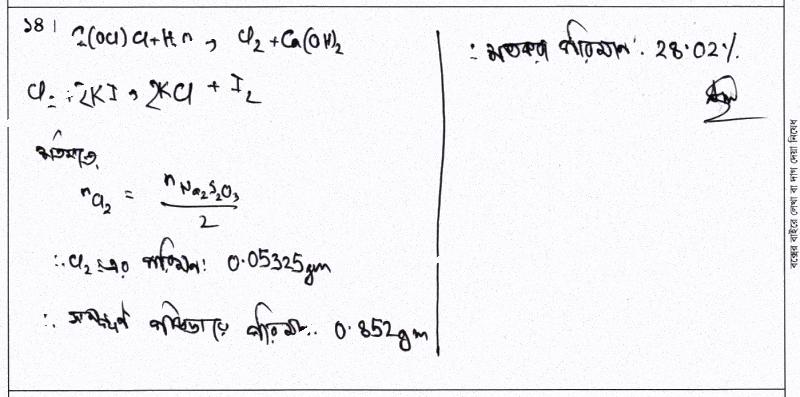 ১৪।
Ca(OCl)Cl + H₂O → Cl₂ + Ca(OH)₂
Cl₂ + 2KI → 2KCl + I₂
প্রতিমতে,
nCl₂ = nNa₂S₂O₃ / 2
∴ Cl₂ এর পরিমান: 0.05325gm
∴ সম্পূর্ণ পরিমান: 0.852gm
∴ শতকরা পরিমান: 28.02%
বক্সের বাইরে লেখা বা দাগ দেয়া নিষেধ